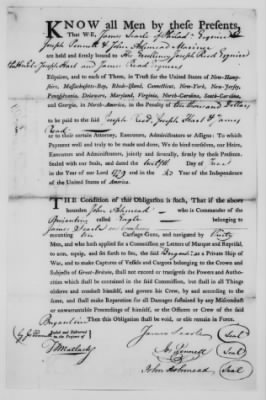 KNOW all Men by these Presents,
That WE, James Searle of Philadᵃ Esquire
Joseph Pennell & John Ashmead Mariner
are held and firmly bound to His Excellency Joseph Reed Esquire
Joseph Hart and James Read Esquires
Esquires, and to each of Them, in Trust for the United States of New-Hampshire,
Massachusetts-Bay, Rhode-Island, Connecticut, New-York, New-Jersey,
Pennsylvania, Delaware, Maryland, Virginia, North-Carolina, South-Carolina,
and Georgia, in North-America, in the Penalty of Ten thousand Dollars
to be paid to the said Joseph Reed, Joseph Hart & James
Read
or to their certain Attorney, Executors, Administrators or Assigns: To which
Payment well and truly to be made and done, We do bind ourselves, our Heirs,
Executors and Administrators, jointly and severally, firmly by these Presents.
Sealed with our Seals, and dated the Day of
in the Year of our Lord 1779 and in the Year of the Independence of
the United States of America.
THE Condition of this Obligation is such, That if the above
bounden John Ashmead who is Commander of the
Brigantine called Eagle belonging to
James Searle
mounting Ten Carriage Guns, and navigated by Thirty
Men, and who hath applied for a Commission or Letters of Marque and Reprisal,
to arm, equip, and set forth to sea, the said Brigantine as a Private Ship of
War, and to make Captures of Vessels and Cargoes belonging to the Crown and
Subjects of Great-Britain, shall not exceed or transgress the Powers and Authorities
which shall be contained in the said Commission, but shall in all Things
observe and conduct himself, and govern his Crew, by and according to the
same, and shall make Reparation for all Damages sustained by any Misconduct
or unwarrantable Proceedings of himself, or the Officers or Crew of the said
Brigantine Then this Obligation shall be void, or else remain in Force.
Sealed and Delivered
in the Presence of
T Matlack
James Searle Seal
Jos Pennell Seal
John Ashmead Seal